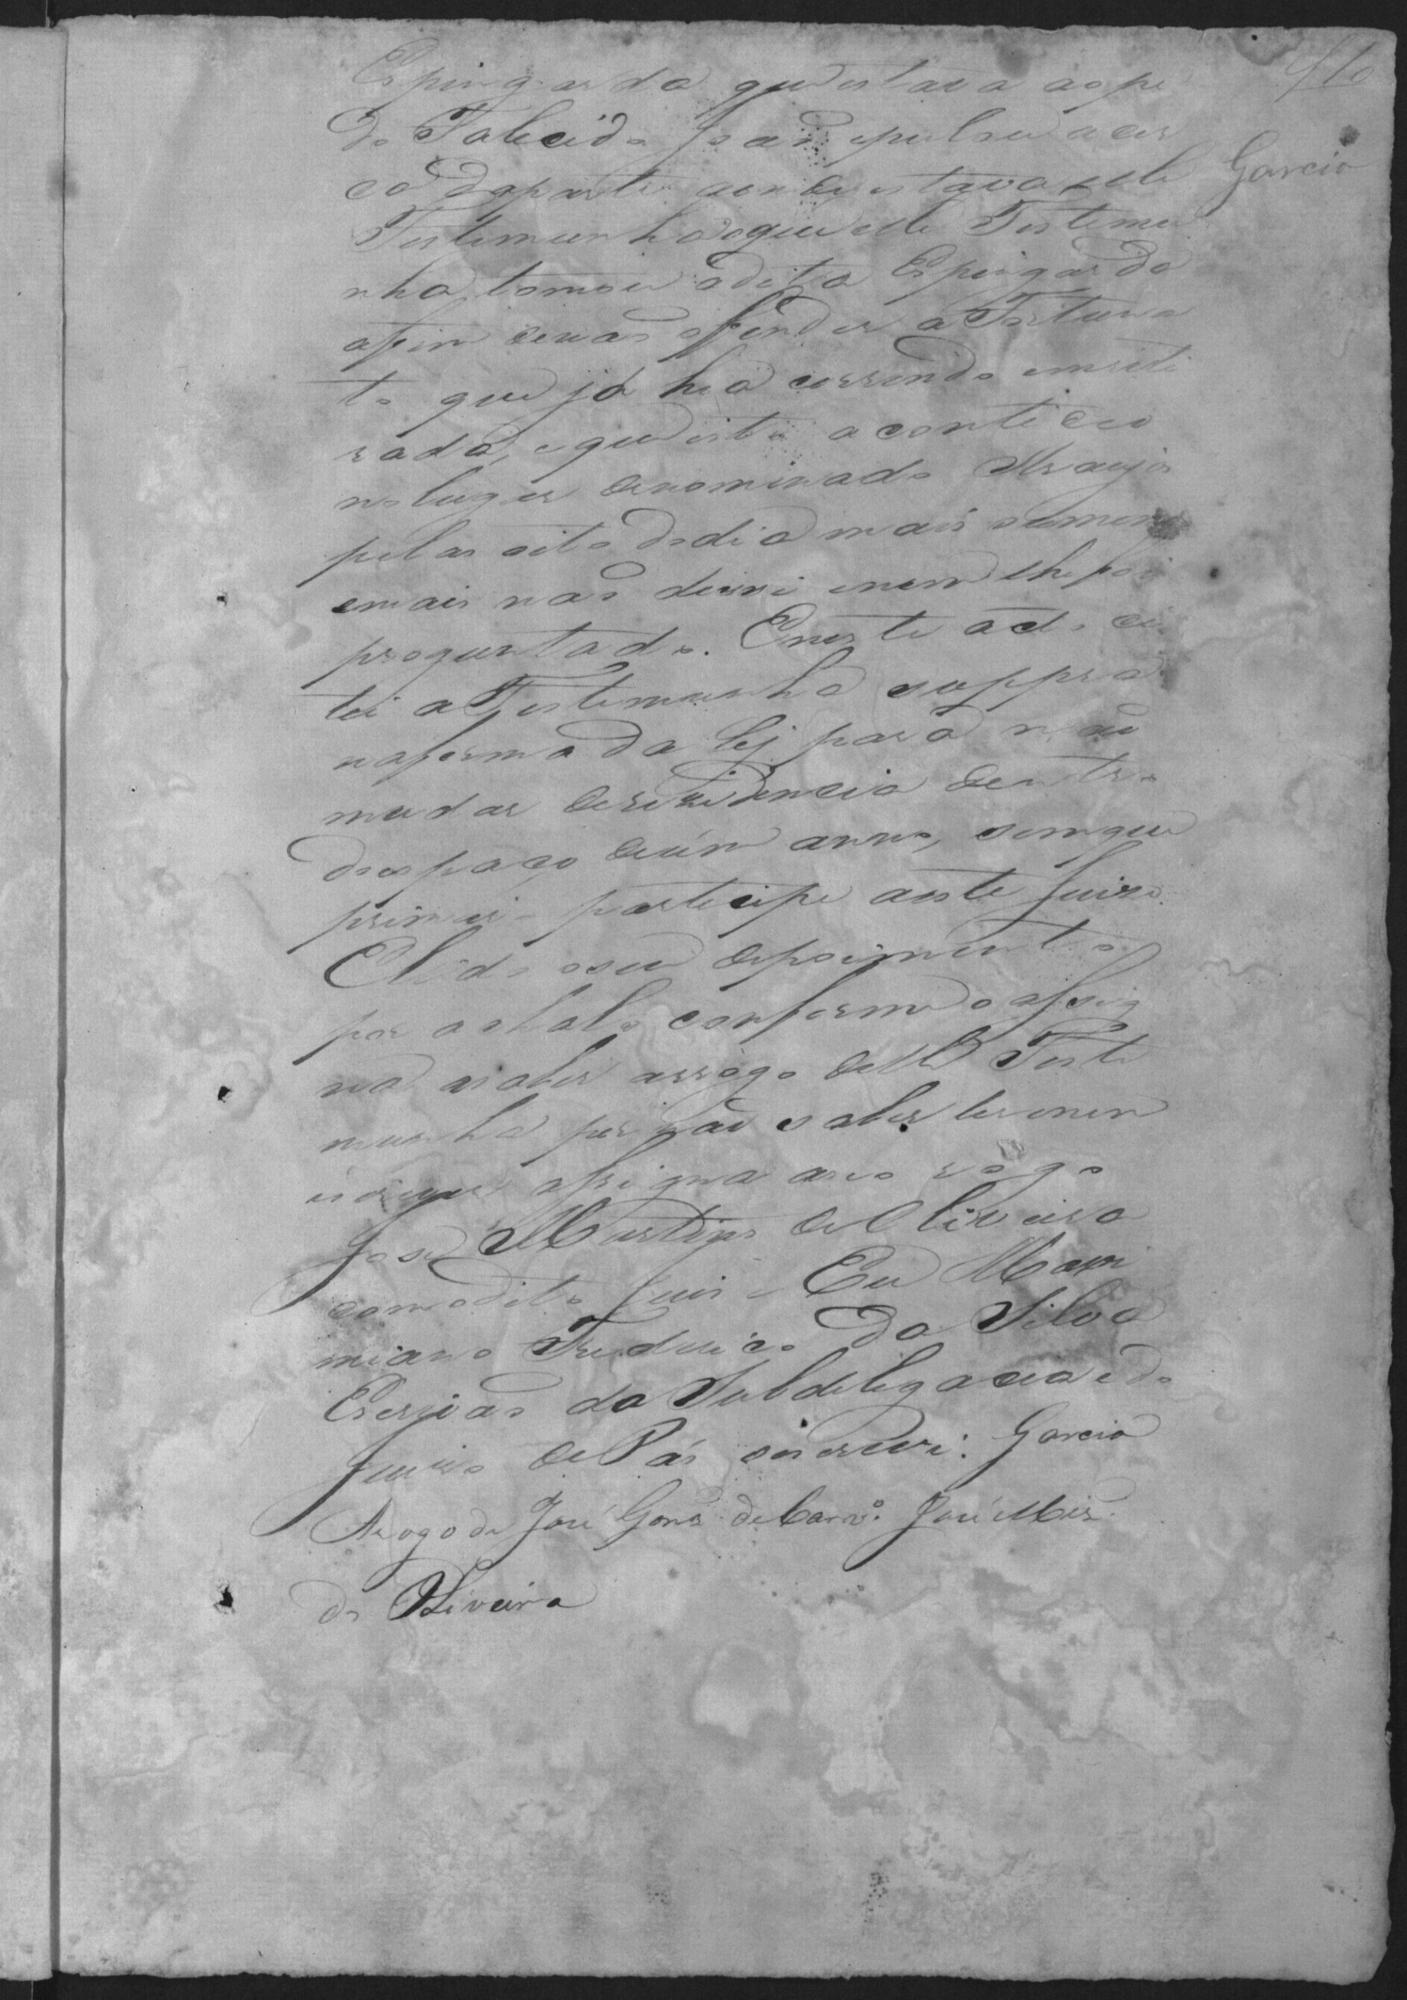 Garcia
Espingarda que estava ao pé
do Falecido João e pulou a cer
ca da parte aonde estava elle
Testemunha e que elle Testemu
nha tomou a dita Espingarda
afim de não offender a Fortuna
to que já hia correndo em reti
rada, e que isto aconteceu
no lugar denominado Araujos
pelas oito do dia mais ou menos
e mais não disse e nem lhe foi
preguntado. E neste acto ci
tei a Testemunha suppra
na forma da lej para não
mudar de rezidencia dentro
do espaço de úm anno, sem que
primeiro participe a este Juizo.
E lido o seu depoimento
por achalo conforme o assig
na a rôgo delle Teste
munha por não saber ler e nem
escrever assigna a seo rogo
José Martins de Oliveira
com o dito Juis. Eu Maxi
miano Frederico da Silva
Escrivão da Subdelegacia e do
Juizo de Pás escrevi. Garcia
Arogo de José Gonz de Carvo. José Miz
de Oliveira